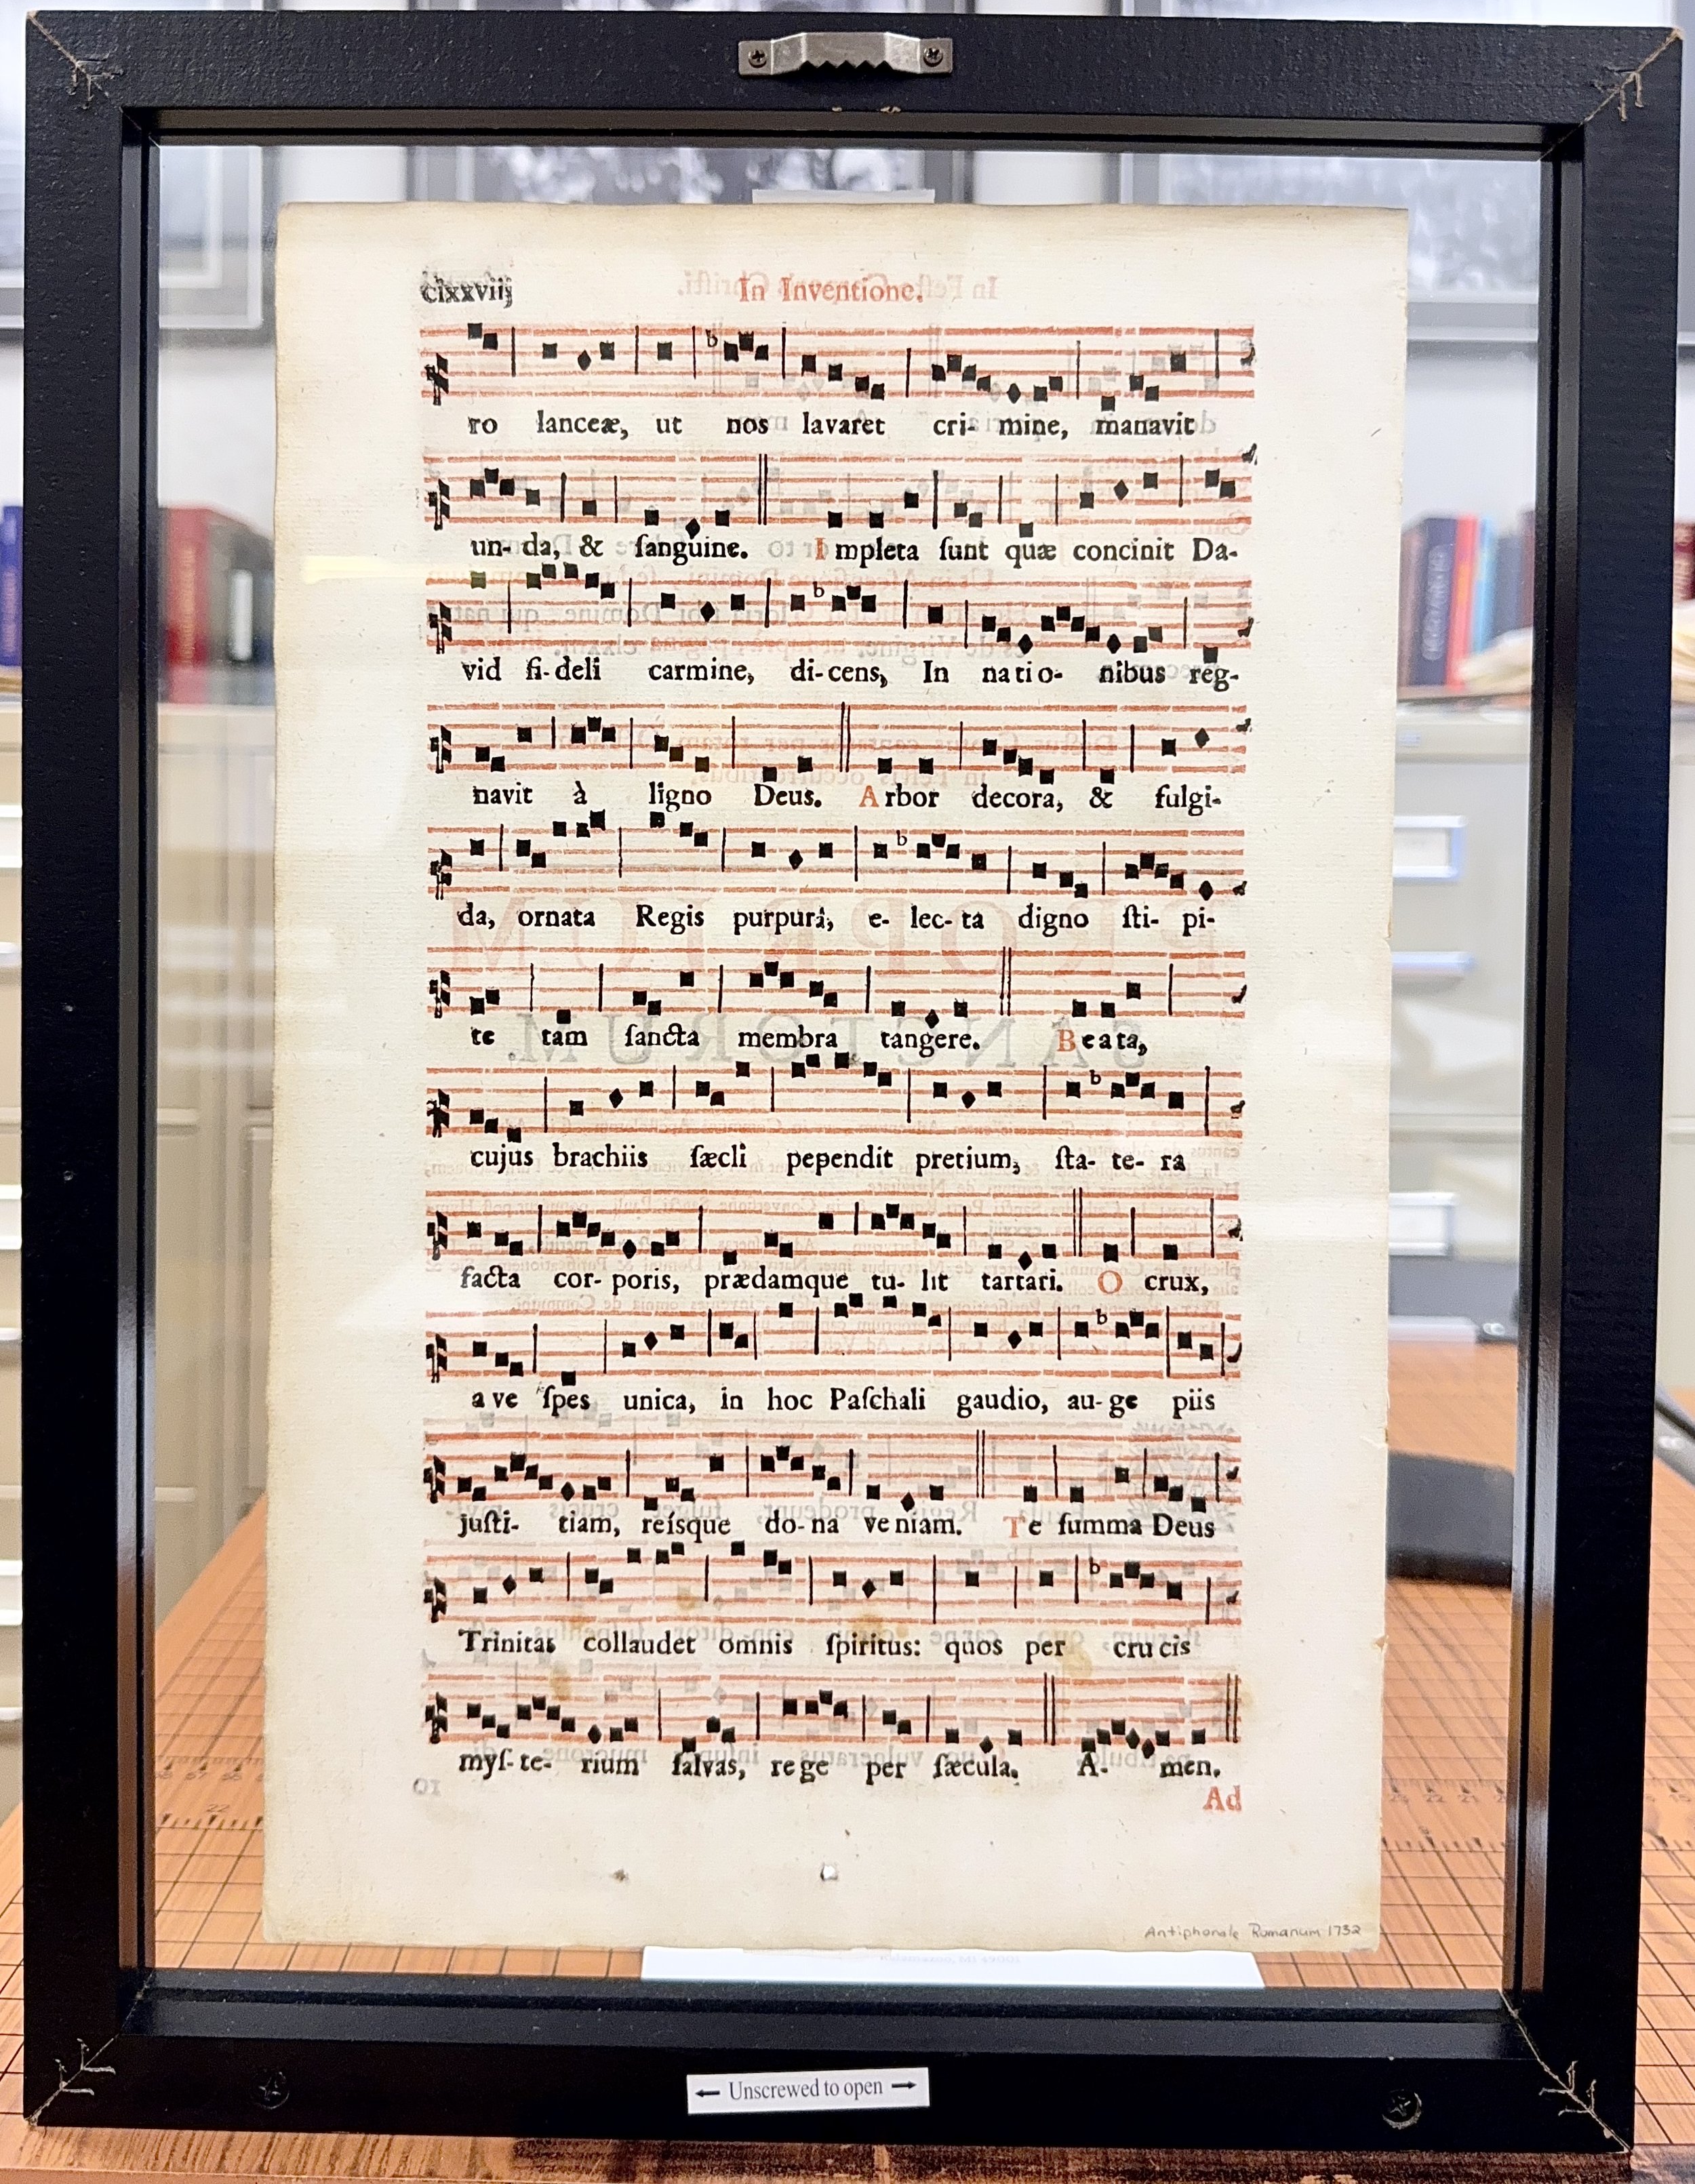 clxxviij In Inventione.
ro lanceæ, ut nos lavaret cri- mine, manavit
un- da, & ſanguine. Impleta ſunt quæ concinit Da-
vid fi-deli carmine, di-cens, In natio- nibus reg-
navit à ligno Deus. Arbor decora, & fulgi-
da, ornata Regis purpurâ, e- lec- ta digno ſti- pi-
te tam ſancta membra tangere. Beata,
cujus brachiis ſæcli pependit pretium, ſta- te- ra
facta cor- poris, prædamque tu- lit tartari. O crux,
ave ſpes unica, in hoc Paſchali gaudio, au- ge piis
juſti- tiam, reíſque do- na veniam. Te ſumma Deus
Trinitas collaudet omnis ſpiritus: quos per crucis
myſ- te- rium ſalvas, rege per ſæcula. A- men.
Ad
Antiphonale Romanum 1732
← Unscrewed to open →